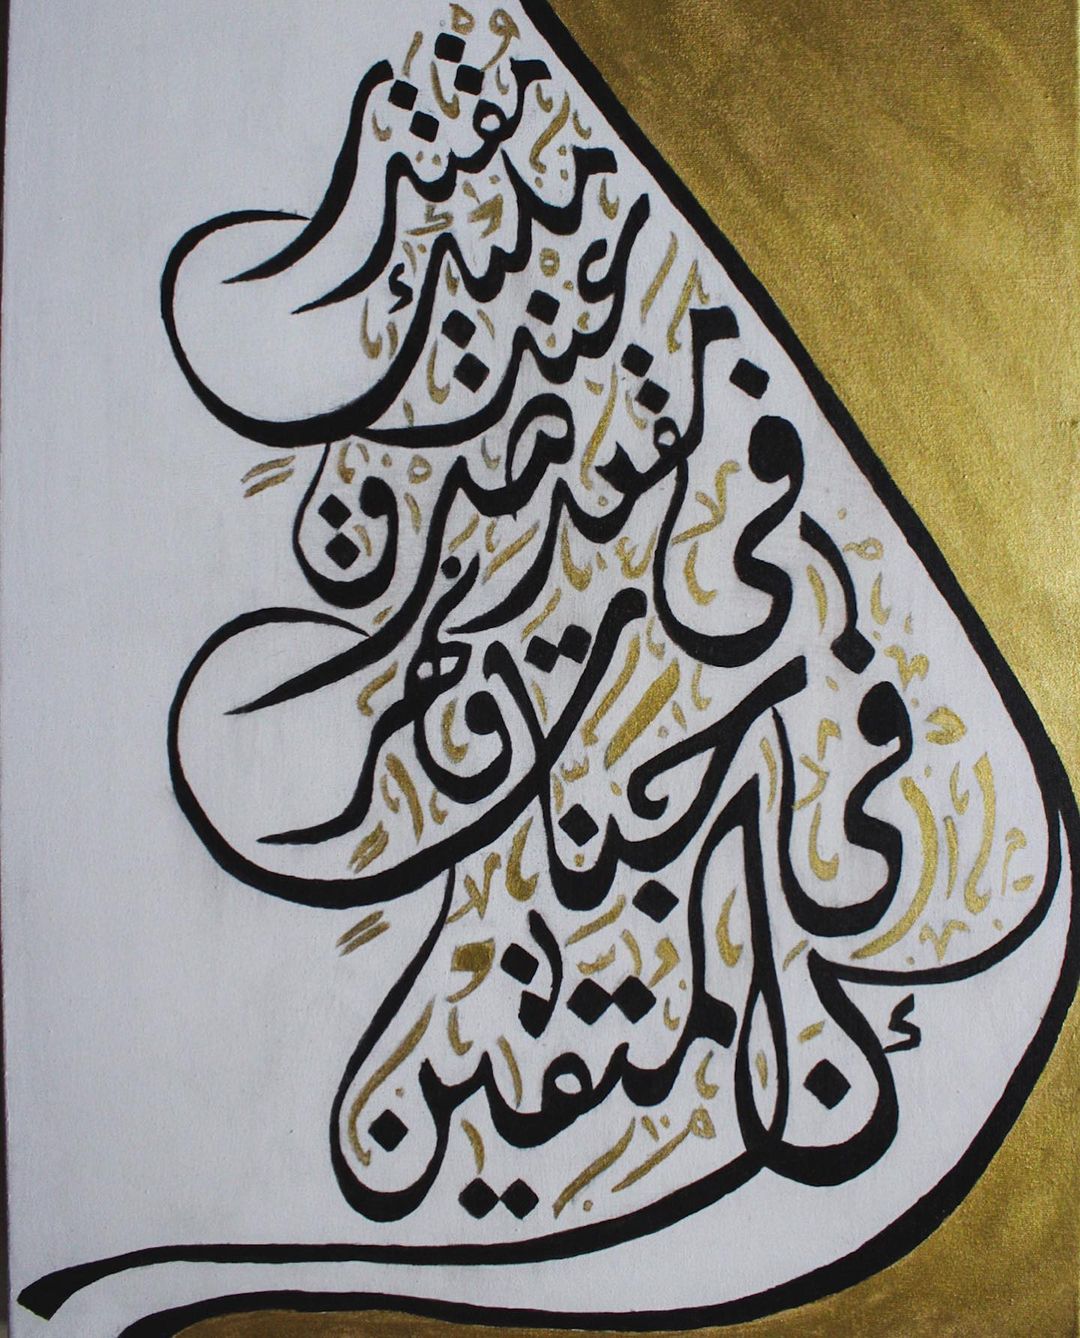 إن المتقين
في جنات ونهر
في مقعد صدق
عند مليك مقتدر